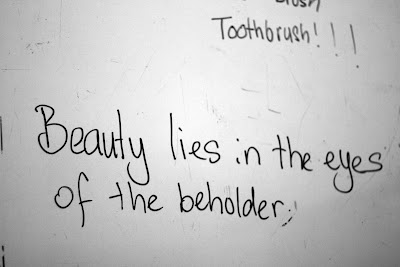 Toothbrush!!!
Beauty lies in the eyes
of the beholder.